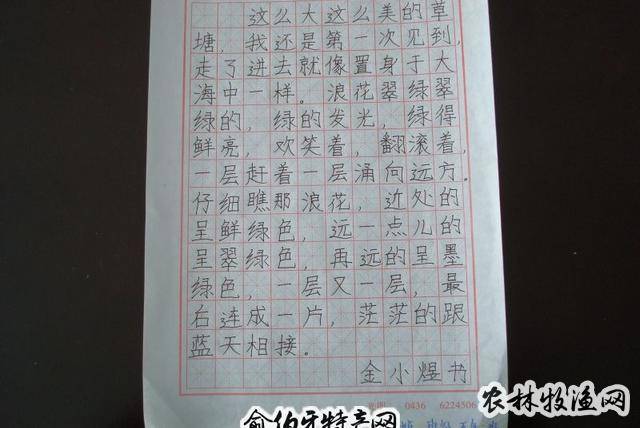 这么大这么美的草
塘，我还是第一次见到，
走了进去就像置身于大
海中一样。浪花翠绿翠
绿的，绿的发光，绿得
鲜亮，欢笑着，翻滚着，
一层赶着一层涌向远方。
仔细瞧那浪花，近处的
呈鲜绿色，远一点儿的
呈翠绿色，再远的呈墨
绿色，一层又一层，最
右连成一片，茫茫的跟
蓝天相接。
金小煜书
0436 6224506
农林牧渔网
俞伯牙特产网